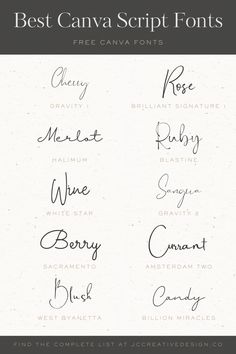 Best Canva Script Fonts
FREE CANVA FONTS
Cherry Rose
GRAVITY 1 BRILLIANT SIGNATURE 1
Merlot Ruby
HALIMUM BLASTINE
Wine Sangria
WHITE STAR GRAVITY 8
Berry Currant
SACRAMENTO AMSTERDAM TWO
Blush Candy
WEST BYANETTA BILLION MIRACLES
FIND THE COMPLETE LIST AT JCCREATIVEDESIGN.CO